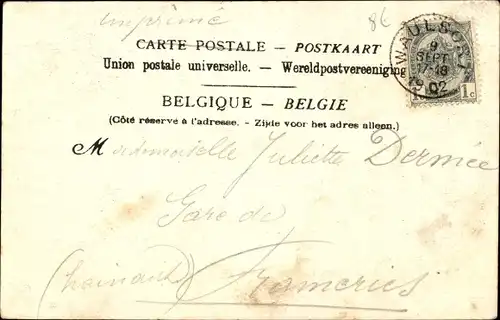 imprimé
86
CARTE POSTALE – POSTKAART
Union postale universelle. – Wereldpostvereeniging
BELGIQUE – BELGIE
(Côté réservé à l'adresse. - Zijde voor het adres alleen.)
WAULSORT
9
SEPT
17-18
1902
1c 1c
Mademoiselle Juliette Dermée
Gare de
(hainaut) Frameries